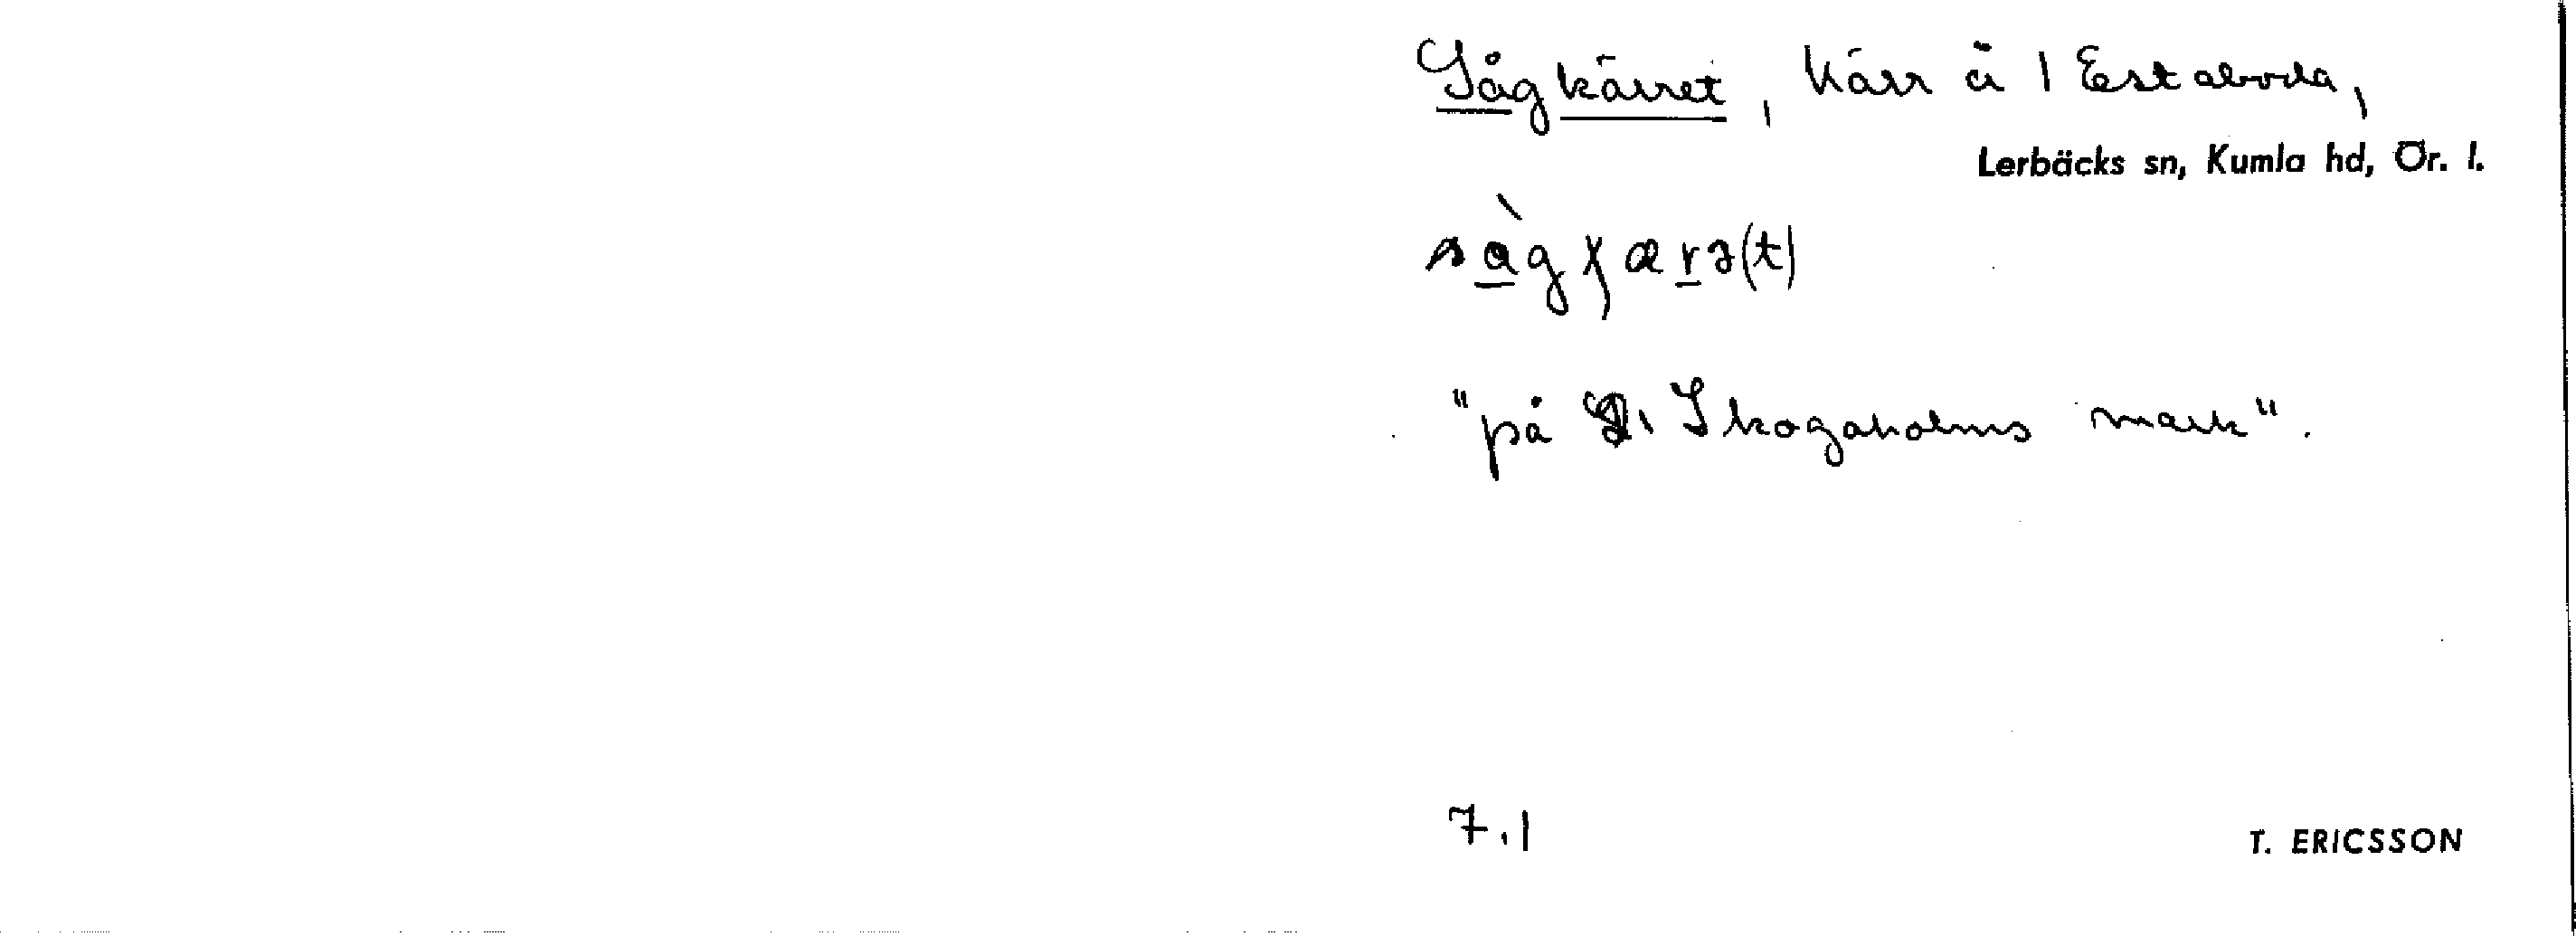 Sågkärret, kärr ä 1 Estaboda,
Lerbäcks sn, Kumla hd, Ör. l.
"på Skogaholms mark".
7.1
T. ERICSSON